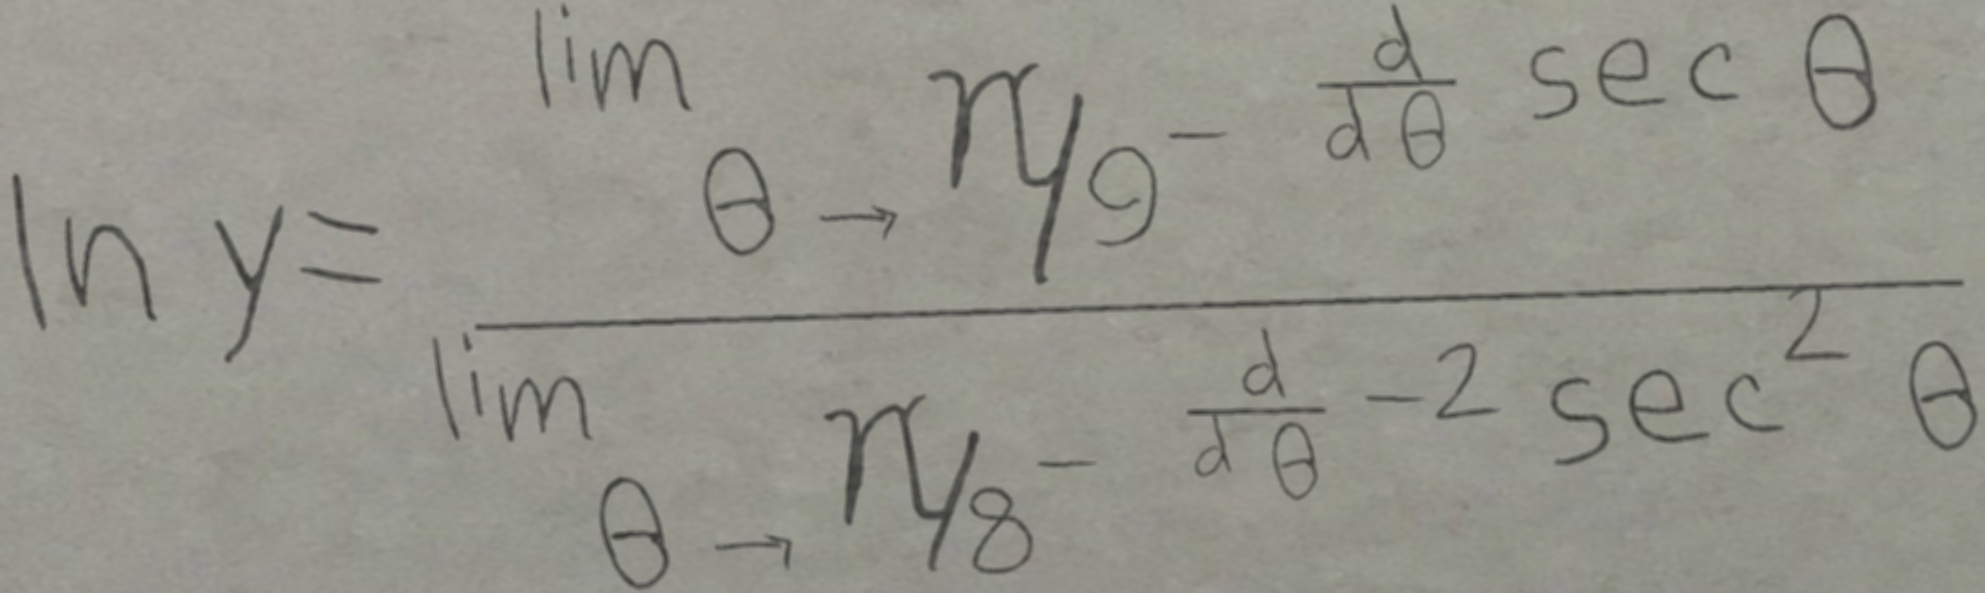 \ln y = \frac{\lim_{\theta \to \pi/9^-} \frac{d}{d\theta} \sec \theta}{\lim_{\theta \to \pi/8^-} \frac{d}{d\theta} -2 \sec^2 \theta}